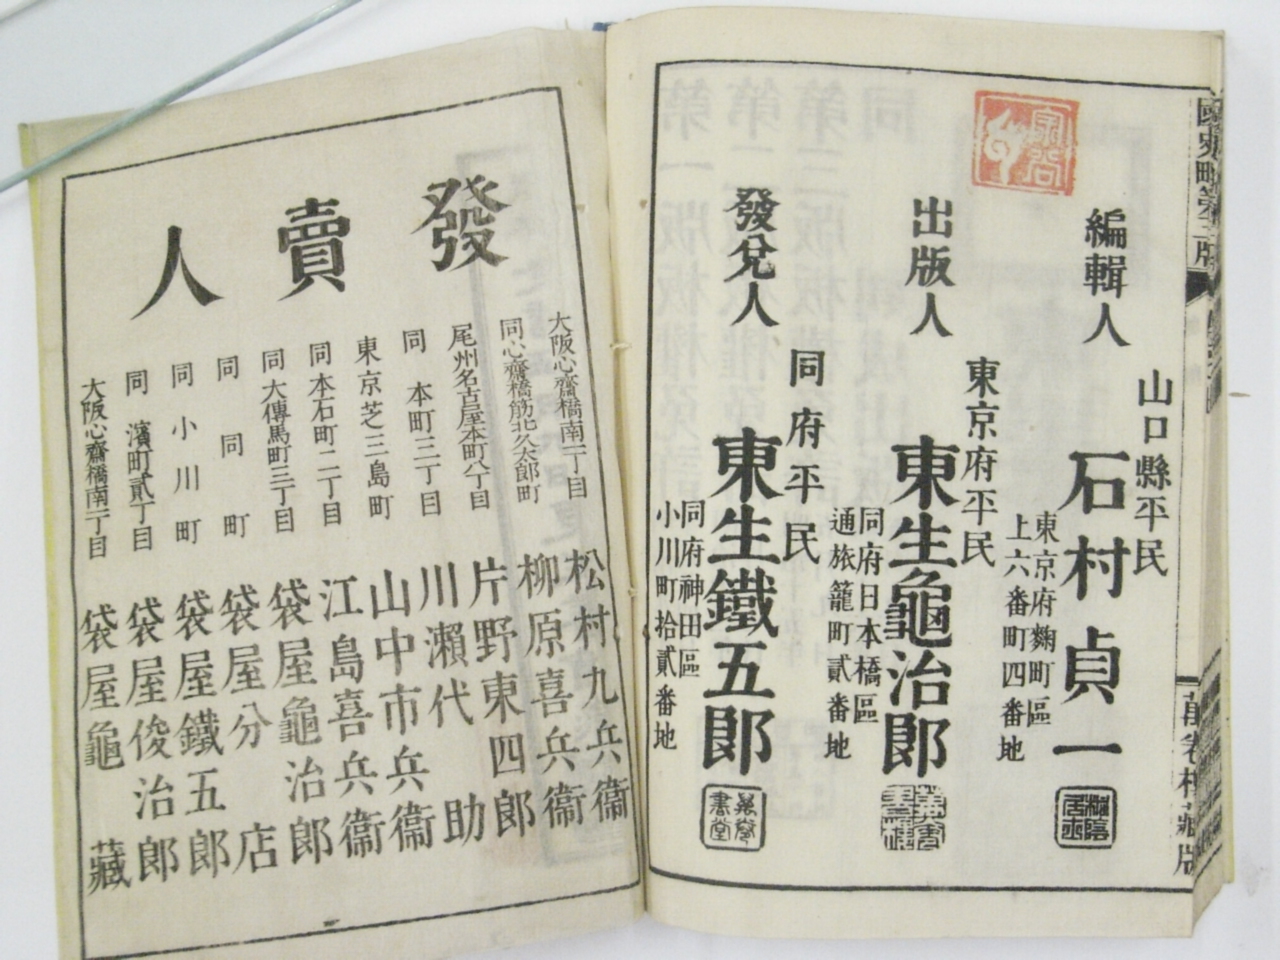 編輯人
山口縣平民
石村貞一
東京府麴町區
上六番町四番地
出版人
東京府平民
東生龜治郎
同府日本橋區
通旅籠町貳番地
發兌人
同府平民
東生鐵五郎
同府神田區
小川町拾貳番地
發賣人
大阪心齋橋南一丁目
松村九兵衞
同心齋橋筋北久太郎町
柳原喜兵衞
尾州名古屋本町八丁目
片野東四郎
同本町三丁目
川瀨代助
東京芝三島町
山中市兵衞
同本石町二丁目
江島喜兵衞
同大傳馬町三丁目
袋屋龜治郎
同同町
袋屋分店
同小川町
袋屋鐵五郎
同濱町貳丁目
袋屋俊治郎
大阪心齋橋南一丁目
袋屋龜藏